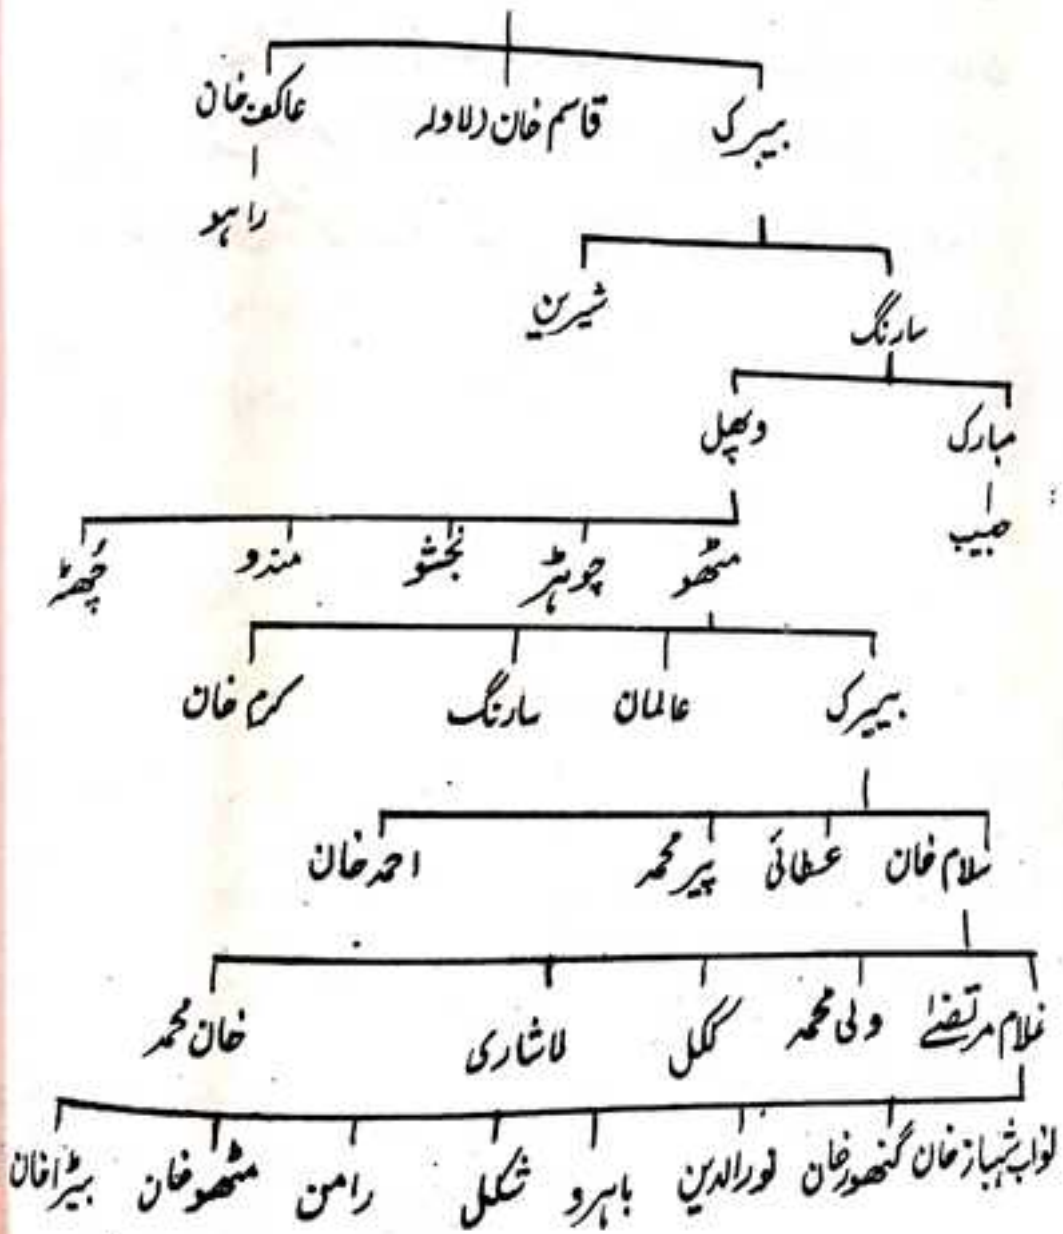 بیبرک قاسم خان (لاولد عاکف خان
راہو
سارنگ شیرین
مبارک وپھل
حبیب
مٹھو چوہڑ بخشو مندو چُھٹر
بیبرک عالمان سارنگ کرم خان
سلام خان عطائی پیر محمد احمد خان
غلام مرتضےٰ ولی محمد ککل لاشاری خان محمد
نواب شہباز خان گنھور خان نورالدین باہرو شکل رامن مٹھو خان بیڑا خان